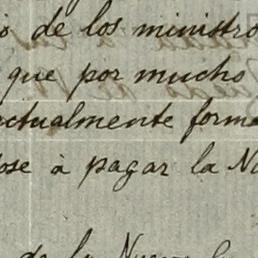 o de los ministro
que por mucho
ctualmente forma
ose à pagar la Na
de la Nueva